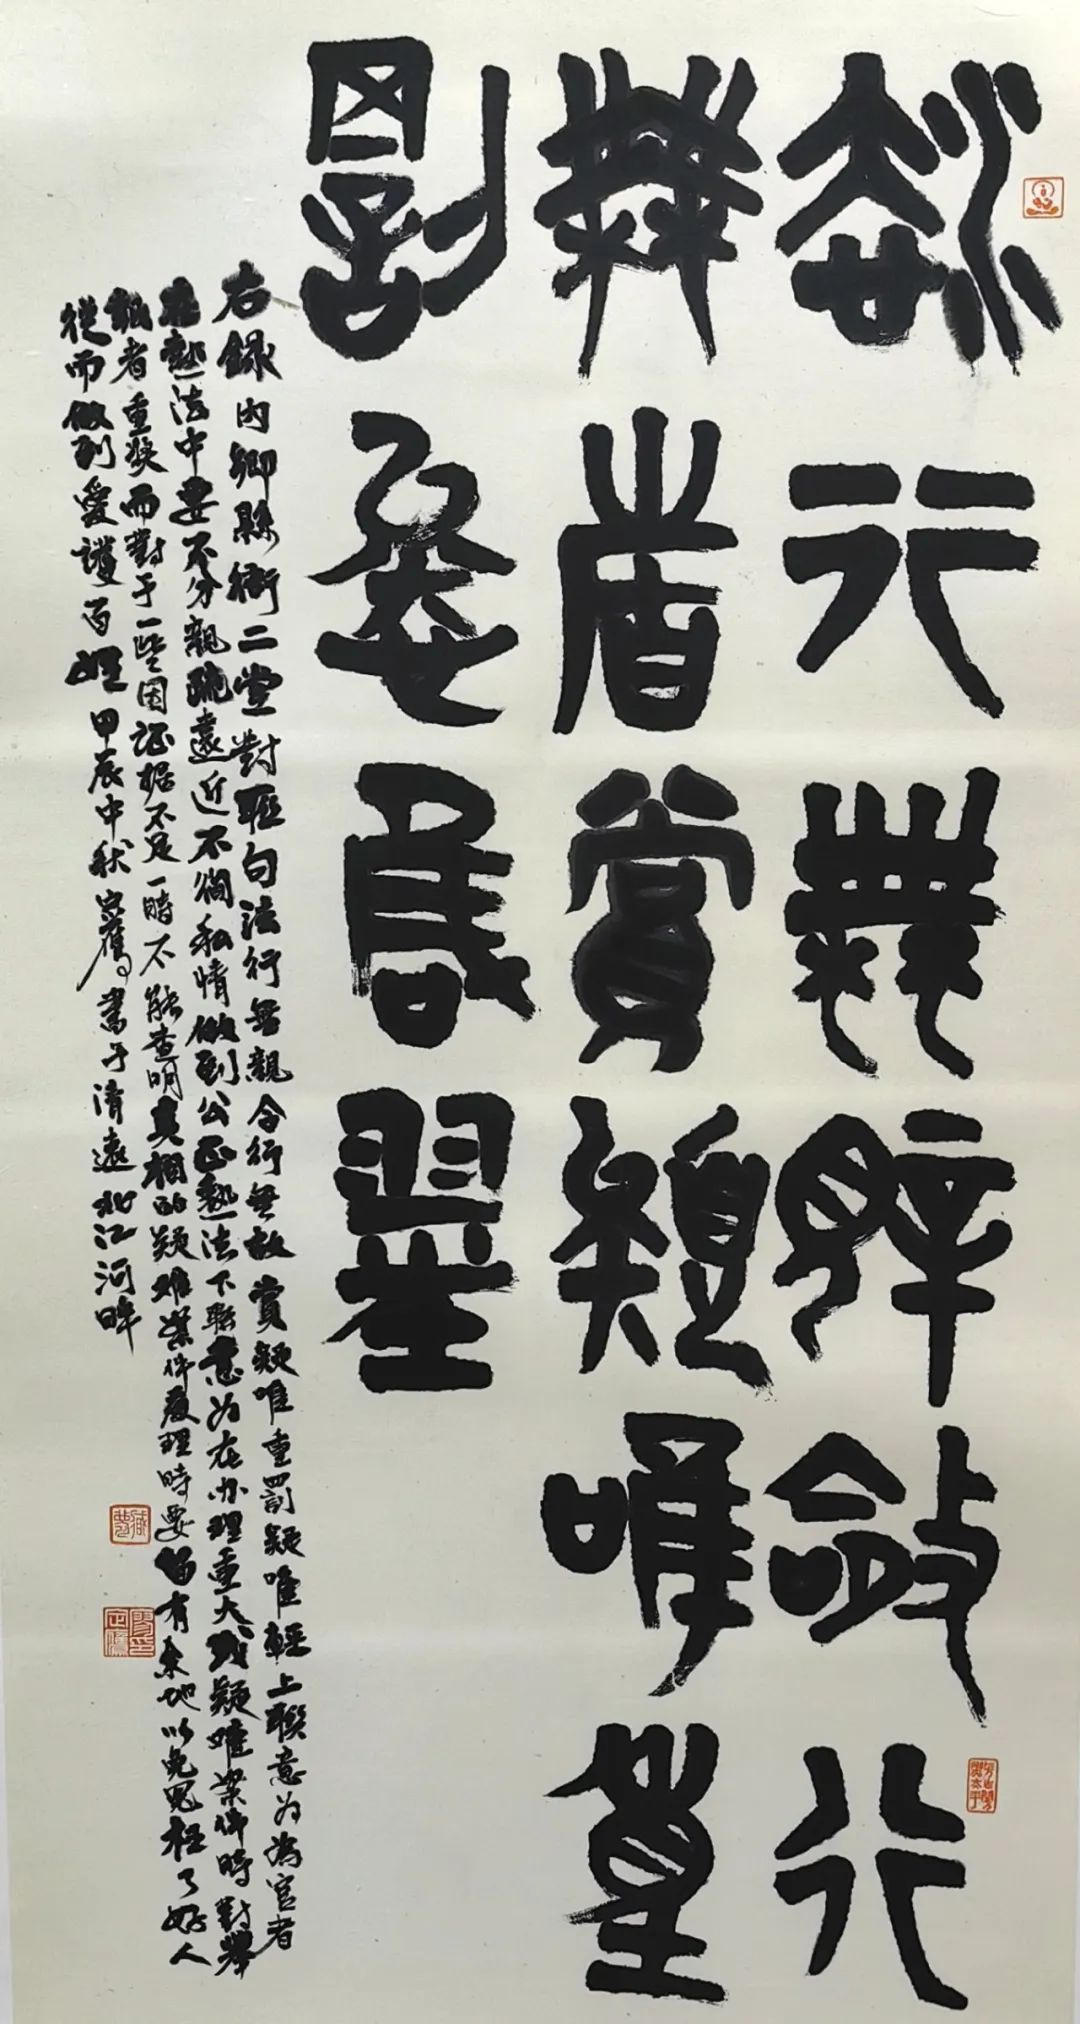 法行無斂行
無者賞疑唯重
罰
右錄內鄉縣衙二堂對聯句法行無親令行無故賞疑唯重罰疑唯輕上聯意为為官者
在執法中要不分親疏遠近不徇私情做到公正執法下聯意为在办理重大或疑難業件時對舉
報者重獎而對于一些因证据不足一時不能查明真相的疑难業件處理時要留有余地以免冤枉了好人
從而做到愛護百姓甲辰中秋定鷹書于清遠北江河畔